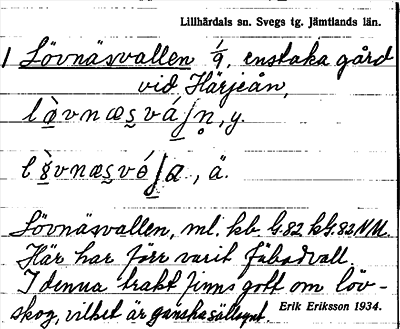 Lillhärdals sn. Svegs tg. Jämtlands län.
1 Lövnäsvallen 1/9, enstaka gård
vid Härjeån,
y.
ä.
Lövnäsvallen, ml. kb. G.82 kG.82 NM.
Här har förr varit fäbodvall.
I denna trakt finns gott om löv-
skog, vilket är ganska sällsynt. Erik Eriksson 1934.